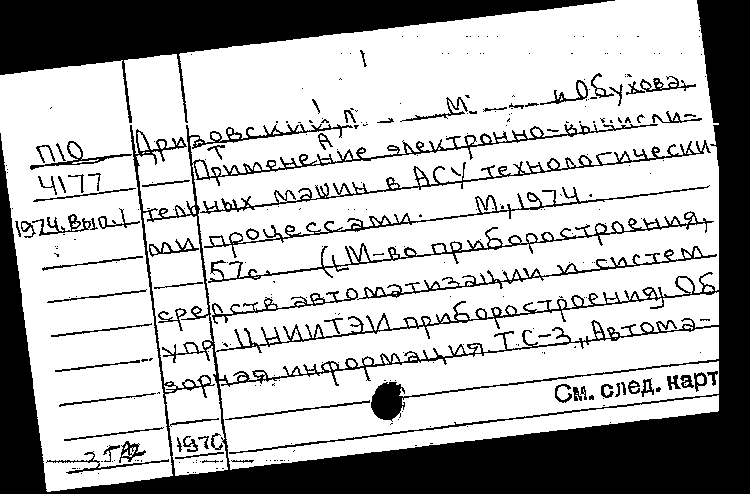 П10
4177
1974, Вып. 1
Дризовский, Л М. и Обухова,
Т А
Применение электронно-вычисли-
тельных машин в АСУ технологически-
ми процессами. М., 1974.
57с. (М-во приборостроения,
средств автоматизации и систем
упр. ЦНИИТЭИ приборостроения) Об
зорная информация ТС-3 „Автома-
См. след. карт
1970